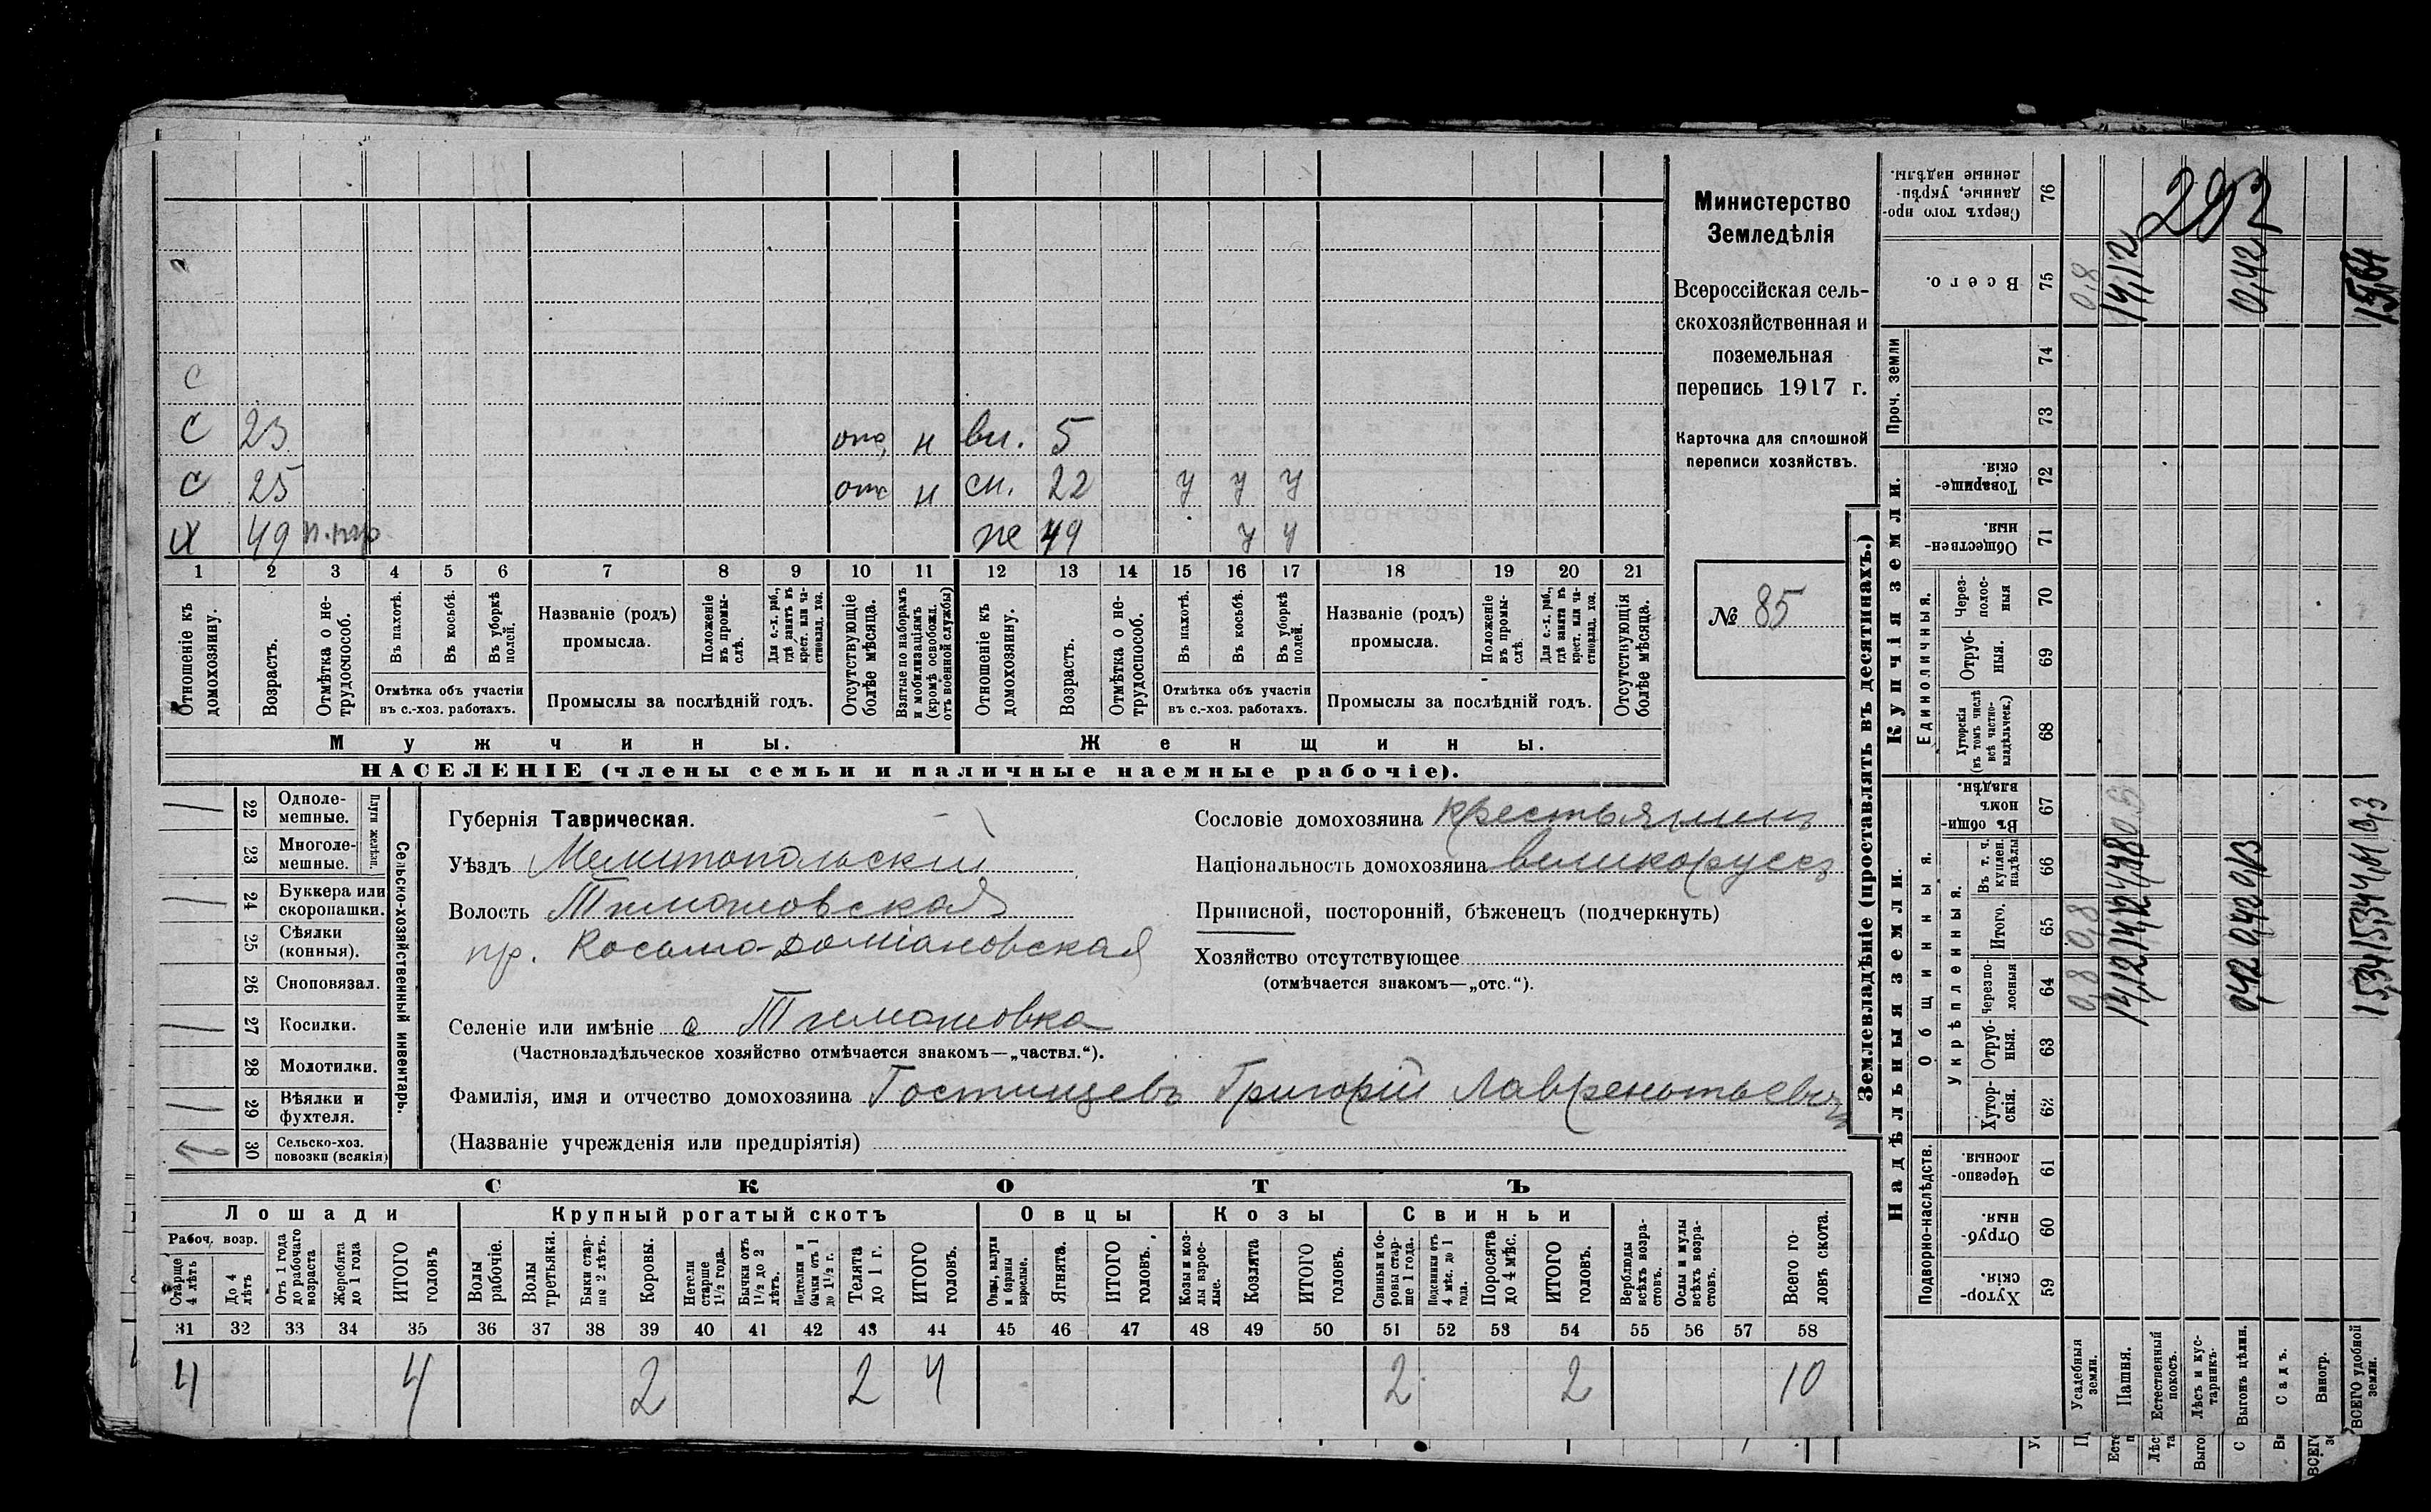 Министерство
Земледѣлія
Всероссійская сель-
скохозяйственная и
поземельная
перепись 1917 г.
Карточка для сплошной
переписи хозяйствъ.
№ 85
292
С
С 23 отс н вн. 5
С 25 отс н сн. 22 у у у
Х 49 же 49 у у
1 2 3 4 5 6 7 8 9 10 11 12 13 14 15 16 17 18 19 20 21
Отношеніе къ домохозяину.
Возрастъ.
Отмѣтка о не-трудоспособ.
Въ пахотѣ.
Въ косьбѣ.
Въ уборкѣ полей.
Отмѣтка объ участіи
въ с.-хоз. работахъ.
Названіе (родъ)
промысла.
Положеніе въ промы-слѣ.
Для с.-х. раб., гдѣ занятъ въ крест. или ча-стновлад. хоз.
Промыслы за послѣдній годъ.
Отсутствующіе болѣе мѣсяца.
Взятые по наборамъ и мобилизаціямъ (кромѣ освобожд. отъ военной службы)
Отношеніе къ домохозяину.
Возрастъ.
Отмѣтка о не-трудоспособ.
Въ пахотѣ.
Въ косьбѣ.
Въ уборкѣ полей.
Отмѣтка объ участіи
въ с.-хоз. работахъ.
Названіе (родъ)
промысла.
Положеніе въ промы-слѣ.
Для с.-х. раб., гдѣ занята въ крест. или ча-стновлад. хоз.
Промыслы за послѣдній годъ.
Отсутствующія болѣе мѣсяца.
Мужчины.
Женщины.
НАСЕЛЕНІЕ (члены семьи и наличные наемные рабочіе).
Сельско-хозяйственный инвентарь.
Плуги желѣзн.
22 Одноле-мешные.
23 Многоле-мешные.
24 Буккера или скоропашки.
25 Сѣялки (конныя).
26 Сноповязал.
27 Косилки.
28 Молотилки.
29 Вѣялки и фухтеля.
30 Сельско-хоз. повозки (всякія)
Губернія Таврическая.
Уѣздъ Мелитопольскій
Волость Тимошовская
пр. Косьмо-Доміановская
Селеніе или имѣніе с Тимошовка
(Частновладѣльческое хозяйство отмѣчается знакомъ—„частвл.“).
Фамилія, имя и отчество домохозяина Гостищевъ Григорій Лаврентьевичъ
(Названіе учрежденія или предпріятія)
Сословіе домохозяина крестьянинъ
Національность домохозяина великоруссъ
Приписной, посторонній, бѣженецъ (подчеркнуть)
Хозяйство отсутствующее
(отмѣчается знакомъ—„отс.“).
СКОТЪ
Лошади Крупный рогатый скотъ Овцы Козы Свиньи
Рабоч. возр.
Старше 4 лѣтъ
До 4 лѣтъ
Отъ 1 года до рабочаго возраста
Жеребята до 1 года
ИТОГО головъ
Волы рабочіе.
Волы третьяки.
Быки стар-ше 2 лѣтъ.
Коровы.
Нетели старше 1½ года.
Бычки отъ 1½ до 2 лѣтъ.
Подтелки и бычки отъ 1 до 1½ г.
Телята до 1 г.
ИТОГО головъ.
Овцы, валухи и бараны взрослые.
Ягнята.
ИТОГО головъ.
Козы и коз-лы взрос-лые.
Козлята
ИТОГО головъ.
Свиньи и бо-ровы стар-ше 1 года.
Подсвинки отъ 4 мѣс. до 1 года.
Поросята до 4 мѣс.
ИТОГО головъ.
Верблюды всѣхъ возра-стовъ.
Ослы и мулы всѣхъ возра-стовъ.
Всего го-ловъ скота.
31 32 33 34 35 36 37 38 39 40 41 42 43 44 45 46 47 48 49 50 51 52 53 54 55 56 57 58
4 4 2 2 4 2 2 10
Землевладѣніе (проставлять въ десятинахъ.)
Надѣльныя земли.
Купчія земли.
Проч. земли
Подворно-наслѣдств.
Общинныя.
Укрѣпленныя.
Единоличныя.
59 Хутор-скія.
60 Отруб-ныя.
61 Черезпо-лосныя.
62 Хутор-скія.
63 Отруб-ныя.
64 Черезпо-лосныя
65 Итого.
66 Въ т. ч. куплен. надѣлы
67 Въ общин-номъ владѣн.
68 Хуторскія (въ томъ числѣ всѣ частно-владѣльческ.)
69 Отруб-ныя.
70 Через-полос-ныя
71 Обществен-ныя.
72 Товарище-скія.
73
74
75 Всего.
76 Сверхъ того про-данные, укрѣп-ленные надѣлы.
Усадебныя земли. 0,8 0,8 0,8
Пашня. 14,12 14,12 4,48 14,12
Естественный покосъ.
Лѣсъ и кус-тарникъ.
Выгонъ цѣлин. 0,42 0,42 0,13 0,42
Садъ.
Виногр.
ВСЕГО удобной земли. 15,34 15,34 4,61 0,3 15,64